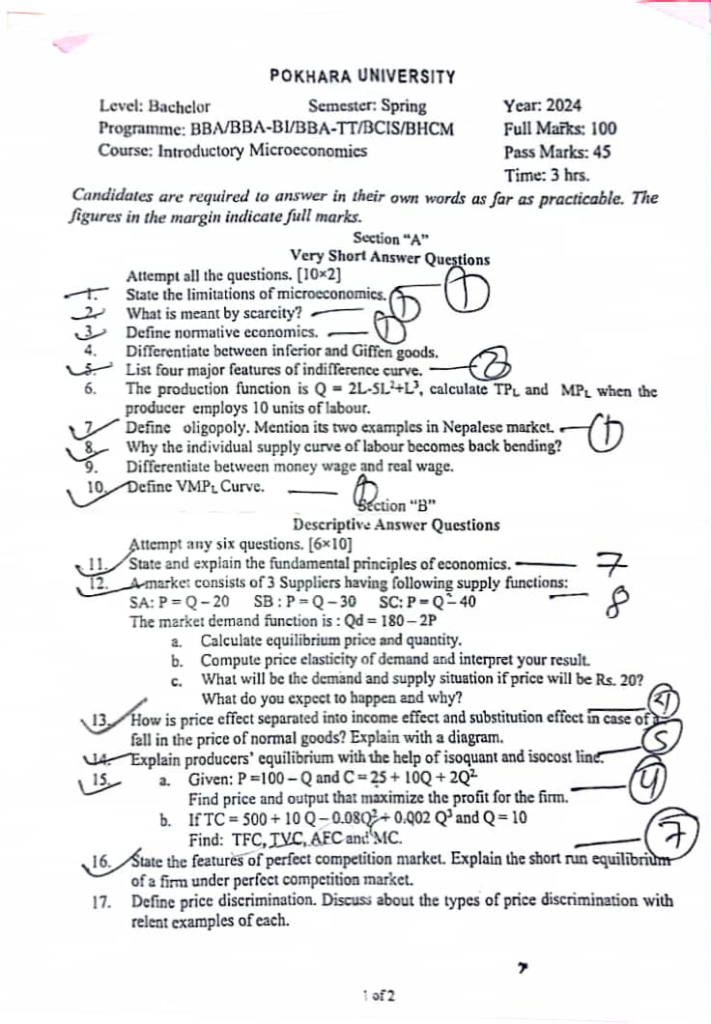 POKHARA UNIVERSITY
Level: Bachelor Semester: Spring Year: 2024
Programme: BBA/BBA-BI/BBA-TT/BCIS/BHCM Full Marks: 100
Course: Introductory Microeconomics Pass Marks: 45
Time: 3 hrs.
Candidates are required to answer in their own words as far as practicable. The
figures in the margin indicate full marks.
Section "A"
Very Short Answer Questions
Attempt all the questions. [10×2]
1. State the limitations of microeconomics. 1
2. What is meant by scarcity? 1
3. Define normative economics. 1
4. Differentiate between inferior and Giffen goods.
5. List four major features of indifference curve. 2
6. The production function is Q = 2L-5L²+L³, calculate TPL and MPL when the
producer employs 10 units of labour.
7. Define oligopoly. Mention its two examples in Nepalese market. 1
8. Why the individual supply curve of labour becomes back bending?
9. Differentiate between money wage and real wage.
10. Define VMPL Curve. 1
Section "B"
Descriptive Answer Questions
Attempt any six questions. [6×10]
11. State and explain the fundamental principles of economics. 7
12. A market consists of 3 Suppliers having following supply functions: 8
SA: P = Q – 20 SB : P = Q – 30 SC: P = Q – 40
The market demand function is : Qd = 180 – 2P
a. Calculate equilibrium price and quantity.
b. Compute price elasticity of demand and interpret your result.
c. What will be the demand and supply situation if price will be Rs. 20?
What do you expect to happen and why?
13. How is price effect separated into income effect and substitution effect in case of a
fall in the price of normal goods? Explain with a diagram. 5
14. Explain producers' equilibrium with the help of isoquant and isocost line.
15. a. Given: P =100 – Q and C = 25 + 10Q + 2Q² 4
Find price and output that maximize the profit for the firm.
b. If TC = 500 + 10 Q – 0.08Q² + 0.002 Q³ and Q = 10
Find: TFC, TVC, AFC and MC. 7
16. State the features of perfect competition market. Explain the short run equilibrium
of a firm under perfect competition market.
17. Define price discrimination. Discuss about the types of price discrimination with
relent examples of each.
1 of 2